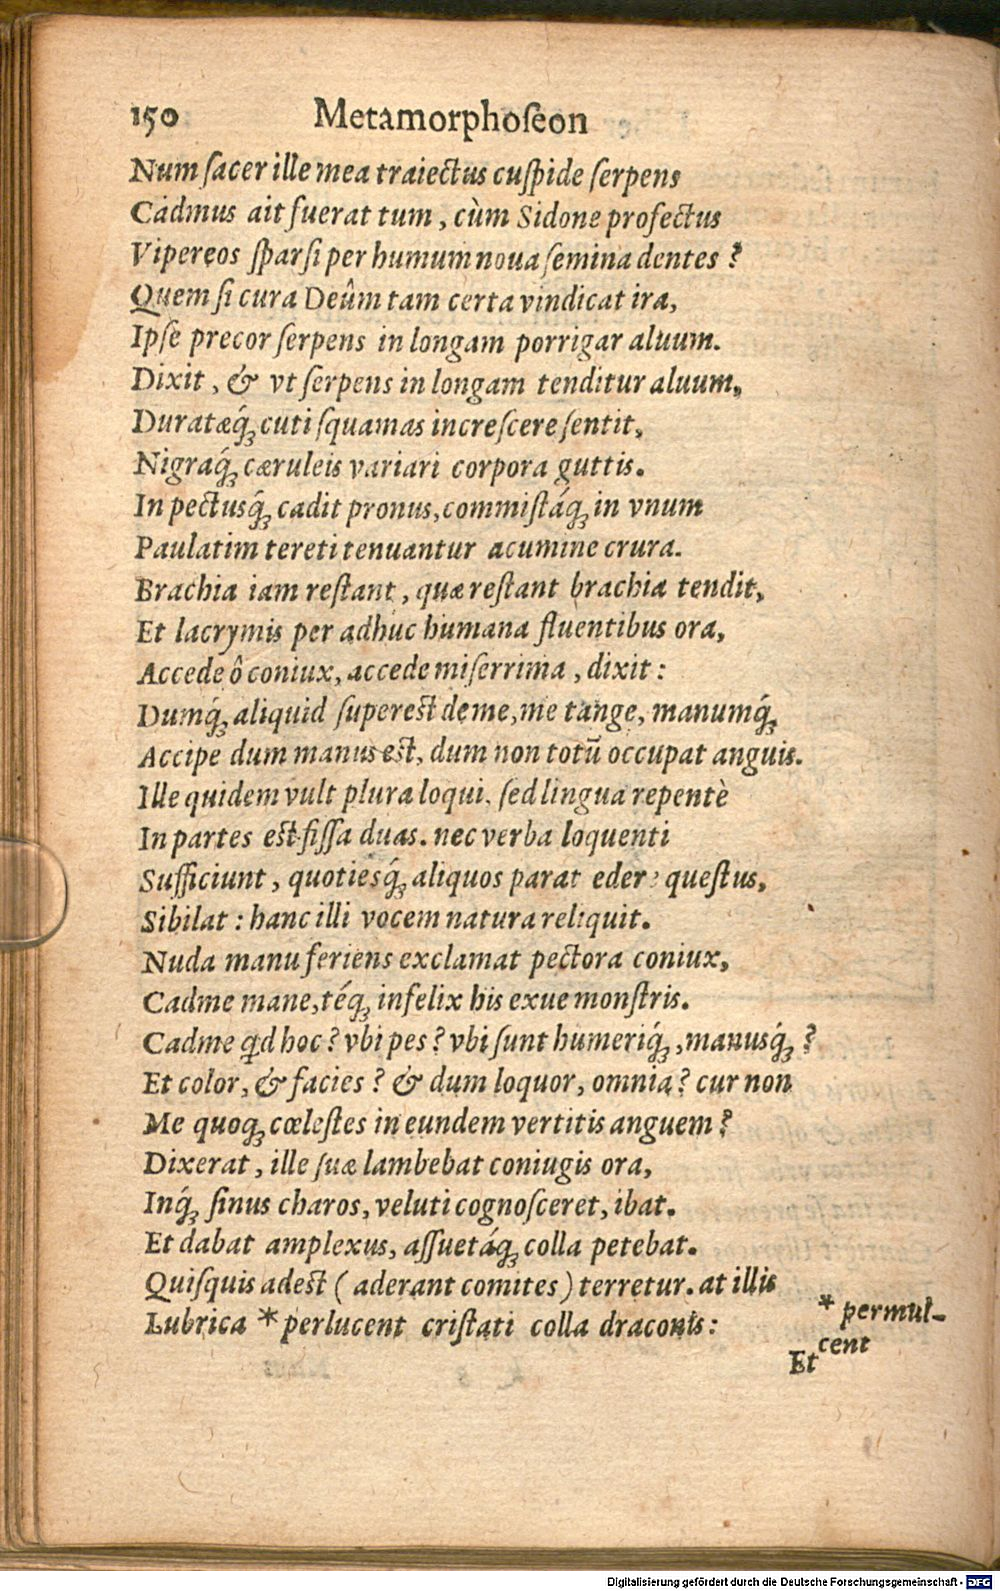 150 Metamorphoſeon
Num ſacer ille mea traiectus cuſpide ſerpens
Cadmus ait fuerat tum, cùm Sidone profectus
Vipereos ſparſi per humum noua ſemina dentes ?
Quem ſi cura Deûm tam certa vindicat ira,
Ipſe precor ſerpens in longam porrigar aluum.
Dixit, & vt ſerpens in longam tenditur aluum,
Duratæq́; cuti ſquamas increſcere ſentit,
Nigraq́; cæruleis variari corpora guttis.
In pectusq́; cadit pronus, commiſtáq́; in vnum
Paulatim tereti tenuantur acumine crura.
Brachia iam reſtant, quæ reſtant brachia tendit,
Et lacrymis per adhuc humana fluentibus ora,
Accede ô coniux, accede miſerrima, dixit :
Dumq́; aliquid ſupereſt de me, me tange, manumq́;
Accipe dum manus eſt, dum non totũ occupat anguis.
Ille quidem vult plura loqui, ſed lingua repentè
In partes eſt fiſſa duas. nec verba loquenti
Sufficiunt, quotiesq́; aliquos parat edere queſtus,
Sibilat : hanc illi vocem natura reliquit.
Nuda manu feriens exclamat pectora coniux,
Cadme mane, téq́; infelix his exue monſtris.
Cadme qd hoc ? vbi pes ? vbi ſunt humeriq́;, manusq́; ?
Et color, & facies ? & dum loquor, omnia ? cur non
Me quoq; cœleſtes in eundem vertitis anguem ?
Dixerat, ille ſuæ lambebat coniugis ora,
Inq́; ſinus charos, veluti cognoſceret, ibat.
Et dabat amplexus, aſſuetáq́; colla petebat.
Quiſquis adeſt ( aderant comites ) terretur. at illis
Lubrica * perlucent criſtati colla draconis :
* permul-
cent
Et
Digitalisierung gefördert durch die Deutsche Forschungsgemeinschaft - DFG